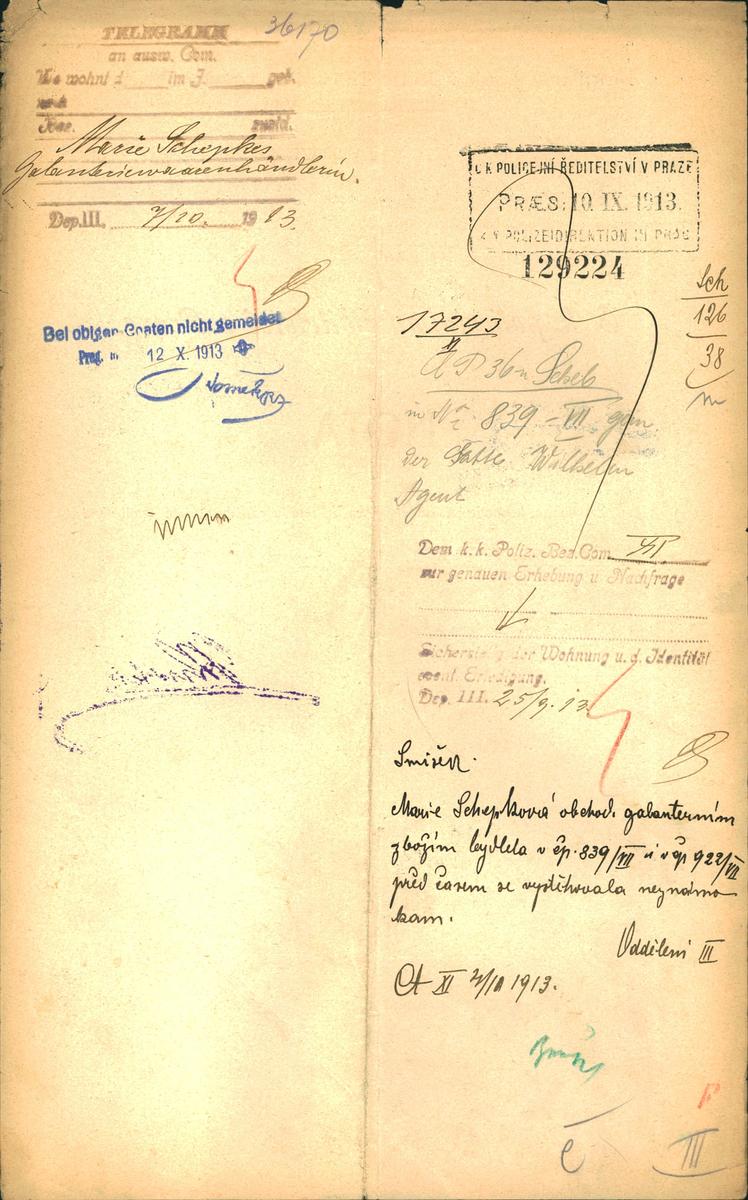 36170
TELEGRAMM
an ausw. Com.
Wo wohnt d im J. geb.
nach
zust.
Marie Schepkes
Galanteriewaarenhändlerin.
Dep. III. 7/10. 1913.
Bei obigen Daten nicht gemeldet
Prag, 12 X. 1913
K.K. POLICEJNÍ ŘEDITELSTVÍ V PRAZE
PRÆS: 10. IX. 1913.
K.K. POLIZEIDIREKTION IN PRAG
129224
Sch
126
38
17243
in No 839 - VII
der Gatte Wilhelm
Agent
Dem k.k. Poliz. Bez. Com.
zur genauen Erhebung u Nachfrage
Sicherstellg der Wohnung u. d. Identität
event. Erledigung.
Dep. III. 25/9. 13.
Marie Schepková obchod. galanterním
zbožím bydlela v čp. 839/VII a v čp 922/VII
před časem se vystěhovala neznámo
kam.
Oddělení III
XI 2/10 1913.
III